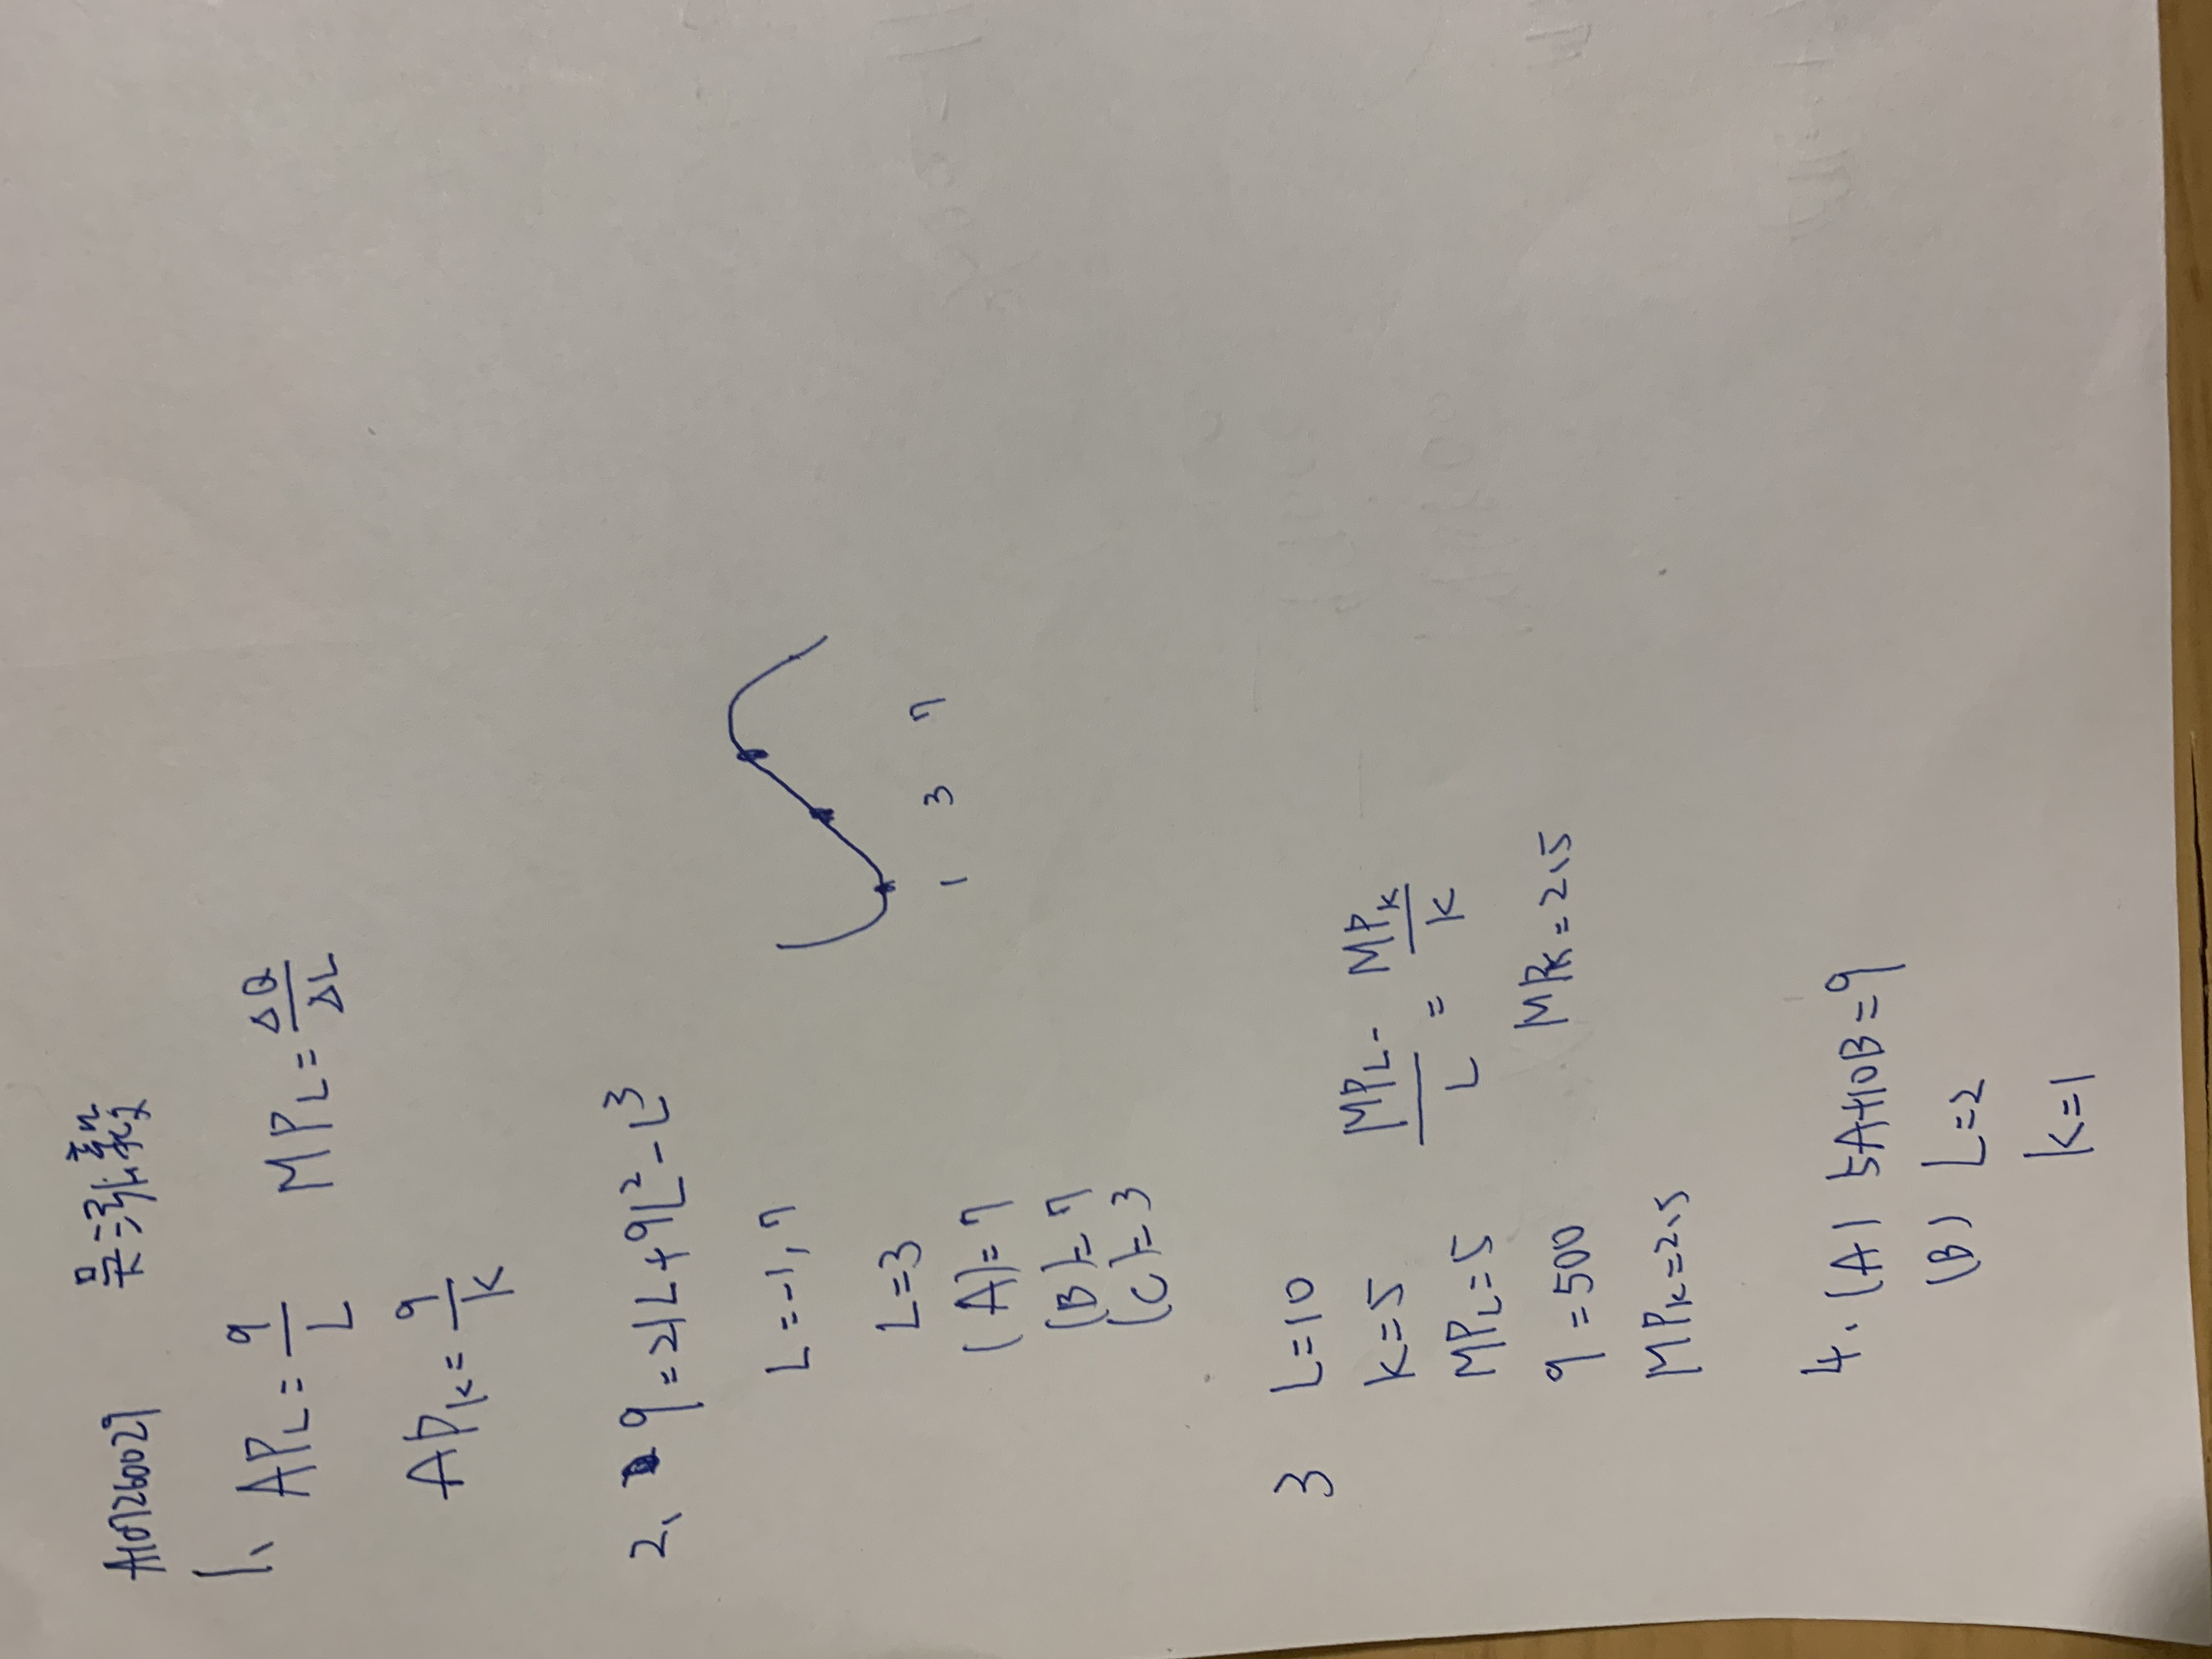 A107260029 吴泓毅
1、 APL = q/L MPL = ΔQ/ΔL
APK = q/K
2、 q = 21L + 9L² - L³
L = -1, 7
L = 3
(A) = 7
(B) = 7
(C) = 3
1 3 7
3 L = 10
K = 5
MPL = 5
q = 500
MPK = 2、5
MPL/L = MPK/K
MPK = 2、5
4. (A) 5A+10B = q
(B) L = 2
K = 1